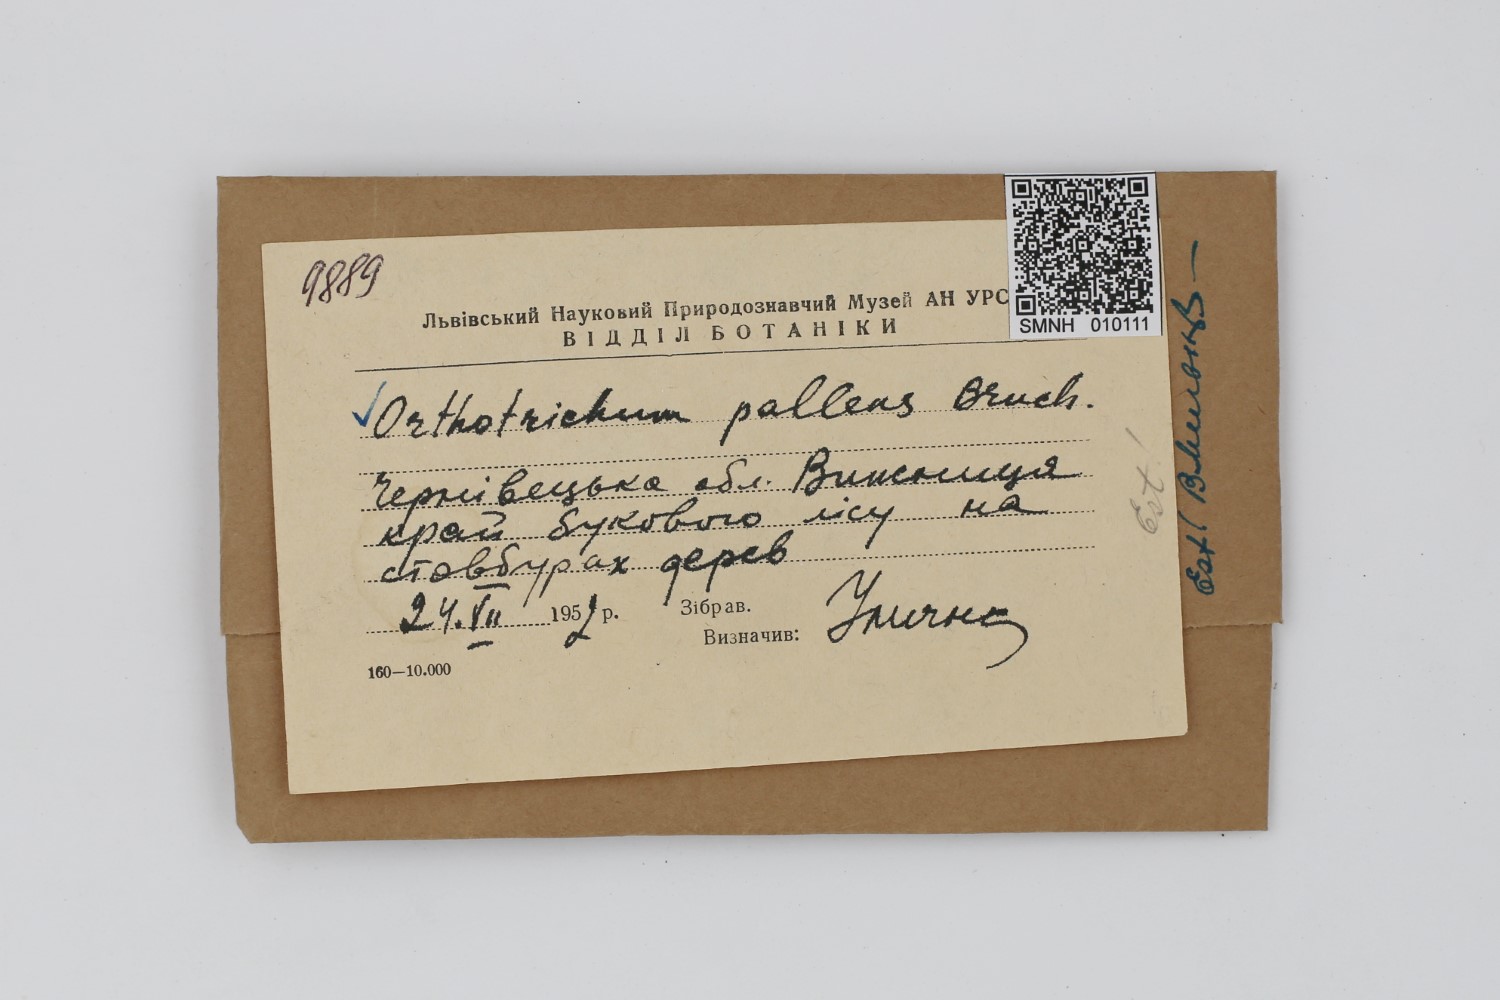 9889
Львівський Науковий Природознавчий Музей АН УРС
ВІДДІЛ БОТАНІКИ
SMNH 010111
Orthotrichum pallens Bruch.
Чернівецька обл. Вижниця
край букового лісу на
стовбурах дерев
24.VII 1957 р. Зібрав.
Визначив: Улична
160—10.000
Est!
Est!